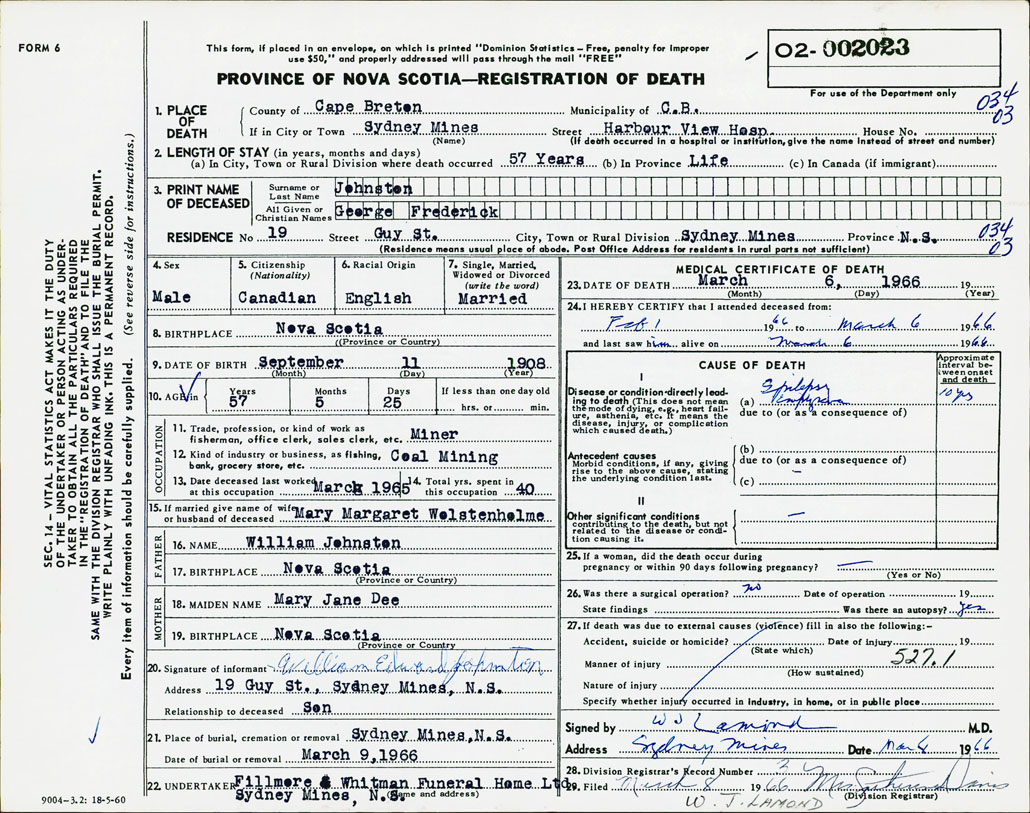 FORM 6
This form, if placed in an envelope, on which is printed "Dominion Statistics – Free, penalty for improper
use $50," and properly addressed will pass through the mail "FREE"
PROVINCE OF NOVA SCOTIA—REGISTRATION OF DEATH
02-002023
For use of the Department only
034
03
1. PLACE OF DEATH
County of Cape Breton Municipality of C.B.
If in City or Town Sydney Mines Street Harbour View Hosp. House No.
(Name) (If death occurred in a hospital or institution, give the name instead of street and number)
2. LENGTH OF STAY (in years, months and days)
(a) In City, Town or Rural Division where death occurred 57 Years (b) In Province Life (c) In Canada (if immigrant)
3. PRINT NAME OF DECEASED
Surname or Last Name Johnston
All Given or Christian Names George Frederick
RESIDENCE No 19 Street Guy St. City, Town or Rural Division Sydney Mines Province N.S.
034
03
(Residence means usual place of abode. Post Office Address for residents in rural parts not sufficient)
4. Sex
Male
5. Citizenship
(Nationality)
Canadian
6. Racial Origin
English
7. Single, Married,
Widowed or Divorced
(write the word)
Married
8. BIRTHPLACE Nova Scotia
(Province or Country)
9. DATE OF BIRTH September 11 1908
(Month) (Day) (Year)
10. AGE in
Years 57
Months 5
Days 25
If less than one day old
hrs. or min.
OCCUPATION
11. Trade, profession, or kind of work as
fisherman, office clerk, sales clerk, etc. Miner
12. Kind of industry or business, as fishing,
bank, grocery store, etc. Coal Mining
13. Date deceased last worked
at this occupation March 1965
14. Total yrs. spent in
this occupation 40
15. If married give name of wife
or husband of deceased Mary Margaret Wolstenholme
FATHER
16. NAME William Johnston
17. BIRTHPLACE Nova Scotia
(Province or Country)
MOTHER
18. MAIDEN NAME Mary Jane Dee
19. BIRTHPLACE Nova Scotia
(Province or Country)
20. Signature of informant William Edward Johnston
Address 19 Guy St., Sydney Mines, N.S.
Relationship to deceased Son
21. Place of burial, cremation or removal Sydney Mines,N.S.
Date of burial or removal March 9,1966
22. UNDERTAKER Fillmore & Whitman Funeral Home Ltd.
Sydney Mines, N.S.
(Name and address)
MEDICAL CERTIFICATE OF DEATH
23. DATE OF DEATH March 6, 1966 19
(Month) (Day) (Year)
24. I HEREBY CERTIFY that I attended deceased from:
Feb 1 1966 to March 6 1966
and last saw him alive on March 6 1966
CAUSE OF DEATH
Approximate
interval be-
tween onset
and death
I
Disease or condition directly lead-
ing to death (This does not mean
the mode of dying, e.g., heart fail-
ure, asthenia, etc. It means the
disease, injury, or complication
which caused death.)
(a) Epilepsy
10 yrs
due to (or as a consequence of)
Antecedent causes
Morbid conditions, if any, giving
rise to the above cause, stating
the underlying condition last.
(b)
due to (or as a consequence of)
–
(c)
II
Other significant conditions
contributing to the death, but not
related to the disease or condi-
tion causing it.
–
25. If a woman, did the death occur during
pregnancy or within 90 days following pregnancy? —
(Yes or No)
26. Was there a surgical operation? no Date of operation 19
State findings Was there an autopsy? yes
27. If death was due to external causes (violence) fill in also the following:-
Accident, suicide or homicide? Date of injury 19
(State which)
527.1
Manner of injury
(How sustained)
Nature of injury
Specify whether injury occurred in industry, in home, or in public place
Signed by W J Lamond M.D.
Address Sydney Mines Date Mar 8 1966
28. Division Registrar's Record Number
29. Filed March 8 1966
(Division Registrar)
W. J. LAMOND
SEC. 14 – VITAL STATISTICS ACT MAKES IT THE DUTY
OF THE UNDERTAKER OR PERSON ACTING AS UNDER-
TAKER TO OBTAIN ALL THE PARTICULARS REQUIRED
IN THE "REGISTRATION OF DEATH" AND TO FILE THE
SAME WITH THE DIVISION REGISTRAR WHO SHALL ISSUE THE BURIAL PERMIT.
WRITE PLAINLY WITH UNFADING INK. THIS IS A PERMANENT RECORD.
Every item of information should be carefully supplied. (See reverse side for instructions.)
9004-3.2: 18-5-60